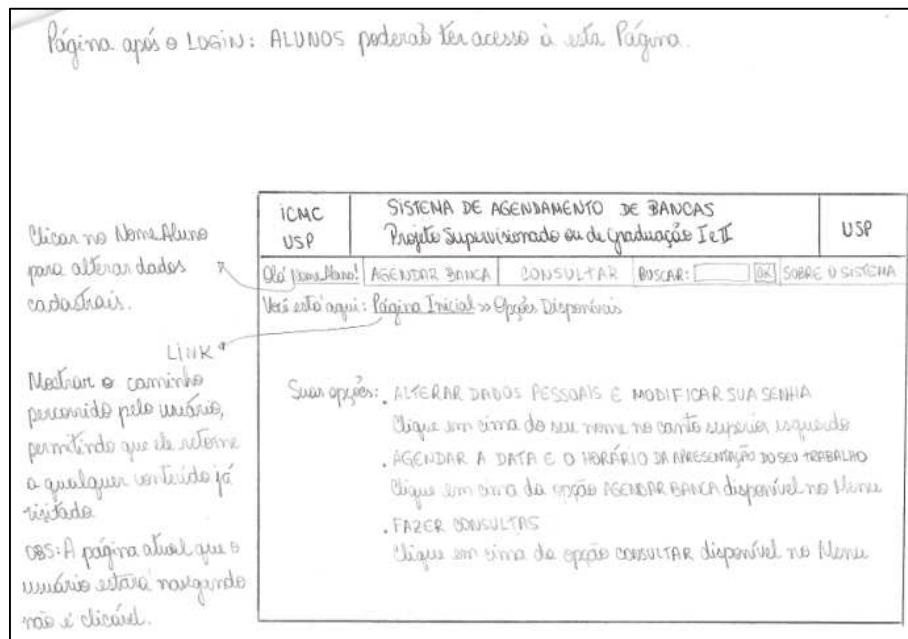 Página após o LOGIN: ALUNOS poderão ter acesso à esta Página.
Clicar no NomeAluno
para alterar dados
cadastrais.
LINK
Mostrar o caminho
percorrido pelo usuário,
permitindo que ele retorne
a qualquer conteúdo já
visitado
OBS: A página atual que o
usuário estará navegando
não é clicável.
ICMC
USP
SISTEMA DE AGENDAMENTO DE BANCAS
Projeto Supervisionado ou de Graduação I e II
USP
Olá NomeAluno! AGENDAR BANCA CONSULTAR BUSCAR: OK SOBRE O SISTEMA
Você está aqui: Página Inicial >> Opções Disponíveis
Suas opções: . ALTERAR DADOS PESSOAIS E MODIFICAR SUA SENHA
Clique em cima do seu nome no canto superior esquerdo
. AGENDAR A DATA E O HORÁRIO DA APRESENTAÇÃO DO SEU TRABALHO
Clique em cima da opção AGENDAR BANCA disponível no Menu
. FAZER CONSULTAS
Clique em cima da opção CONSULTAR disponível no Menu